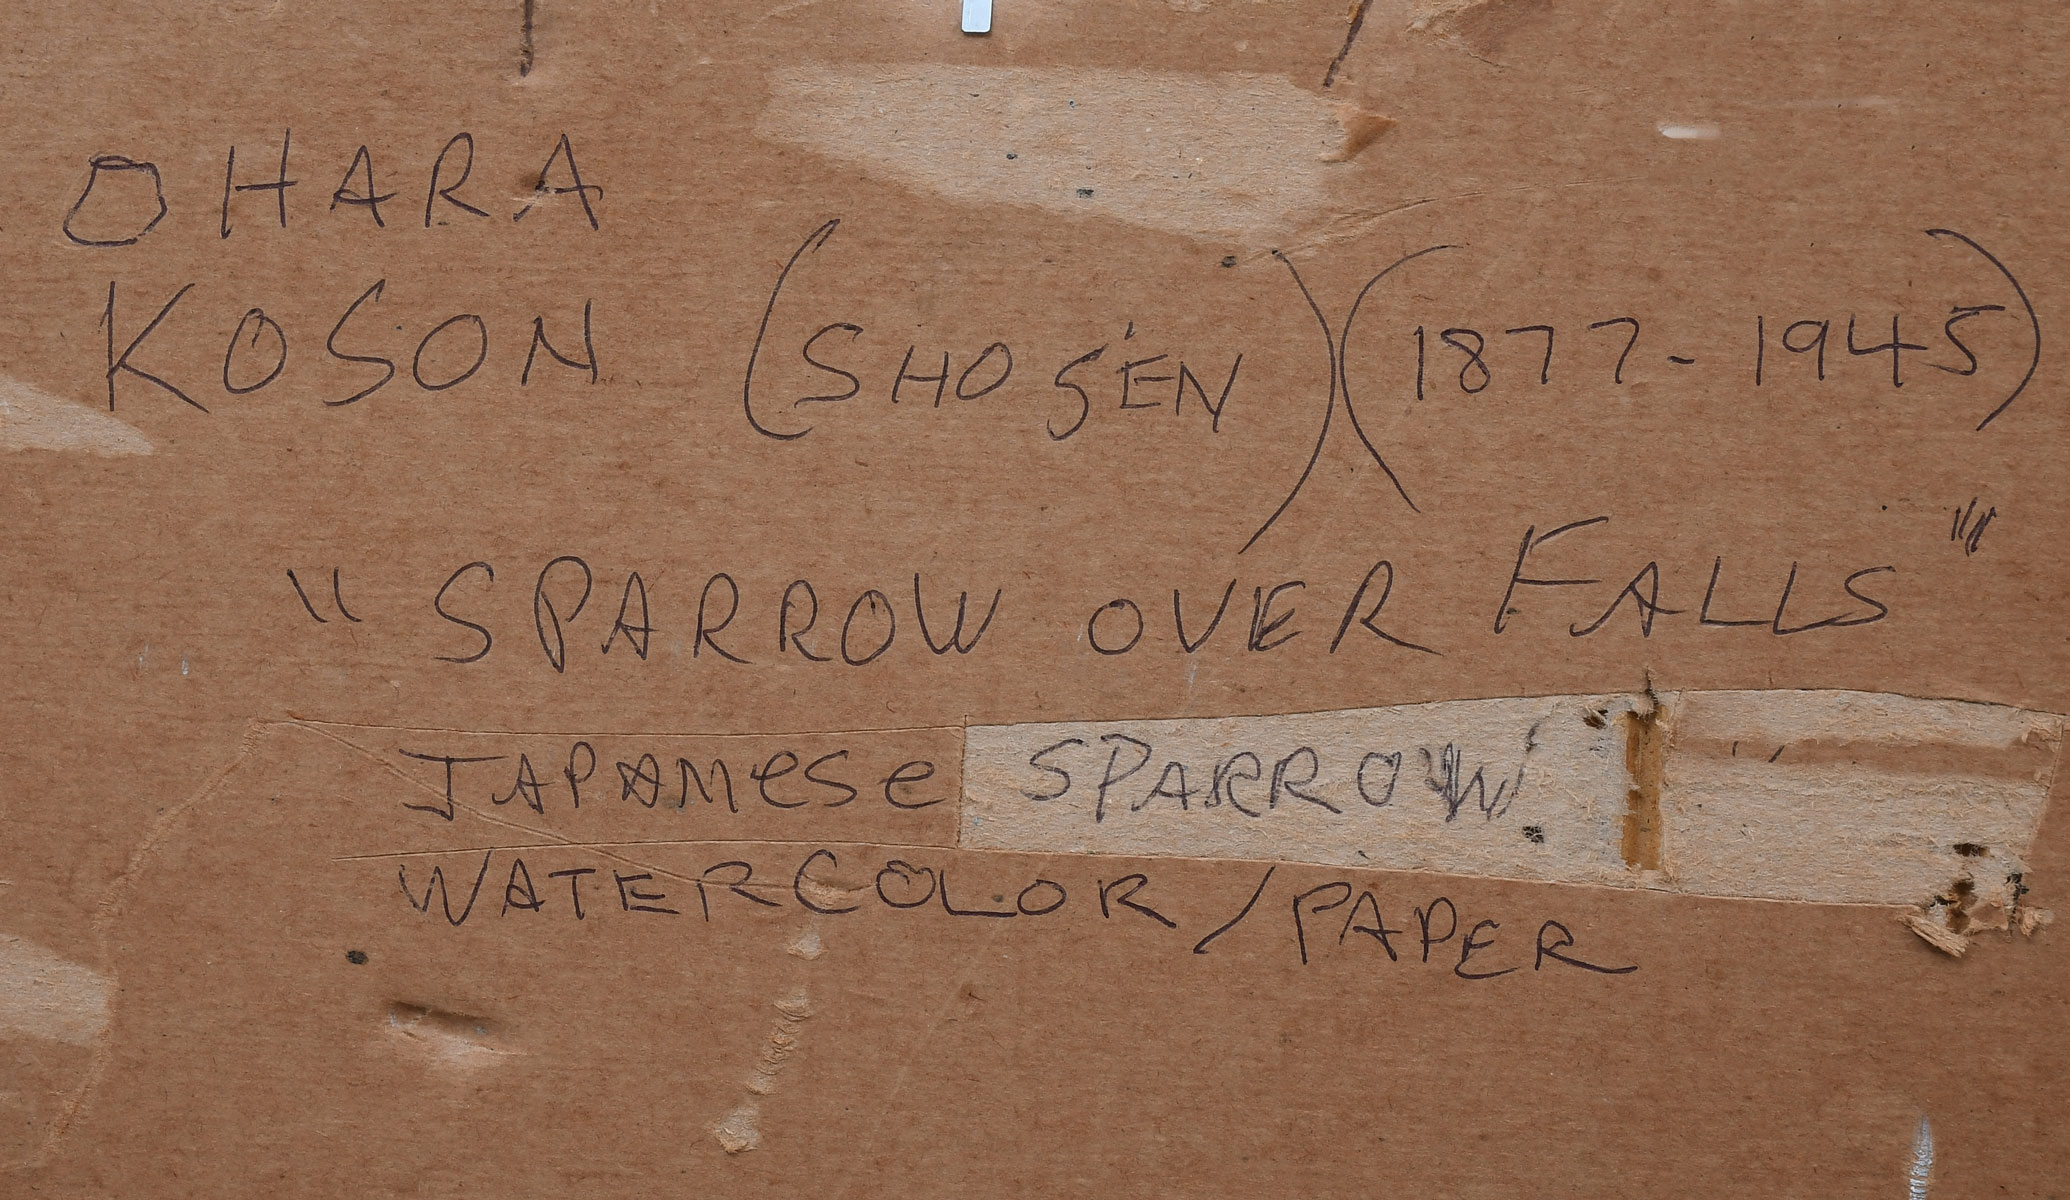 OHARA
KOSON (SHOSEN) (1877-1945)
"SPARROW OVER FALLS"
JAPANese SPARROW
WATERCOLOR/PAPER